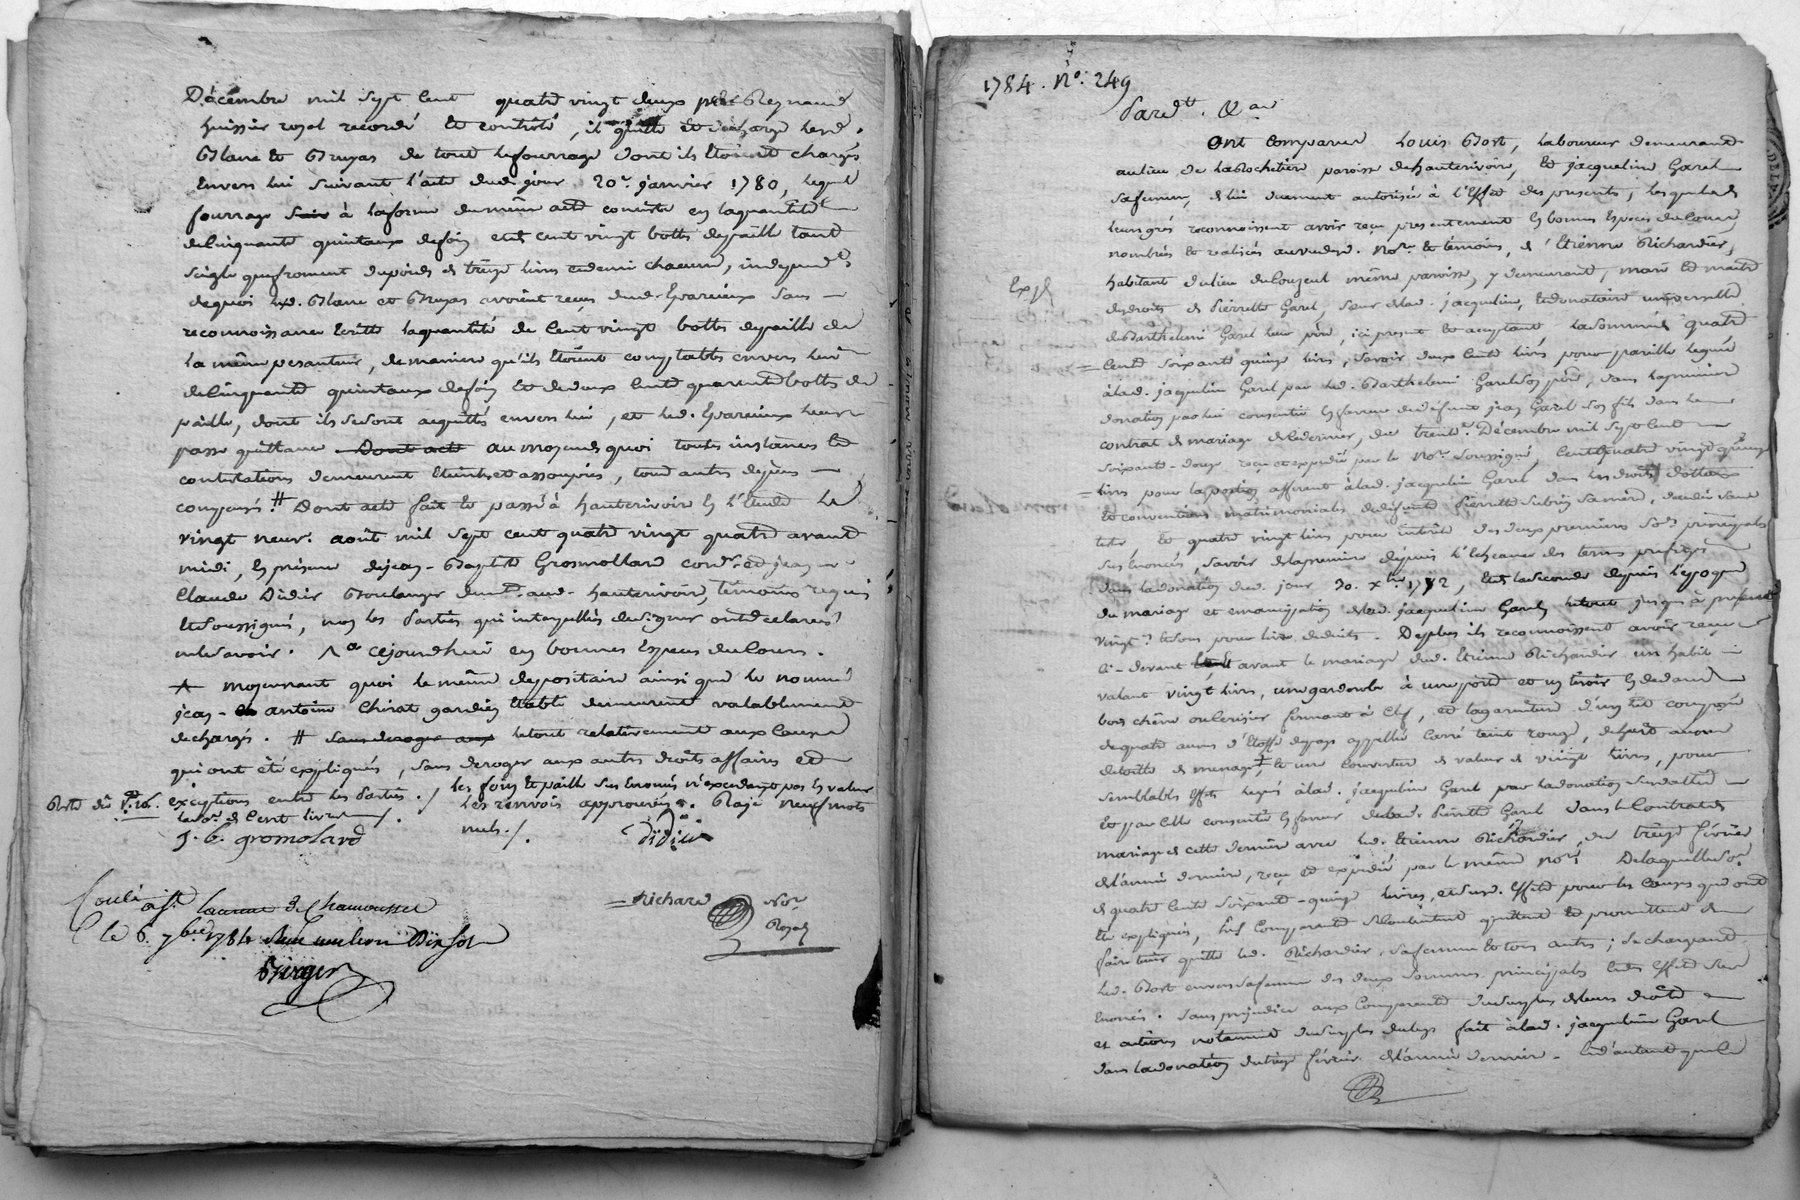 Décembre mil sept cent quatre vingt deux par Reynaud
huissier royal recordé et controlé, il quitte et décharge lesd.
Blanc et Bruyas de tout le fourrage dont ils étoient chargés
envers lui suivant l'acte dud. jour 20e. janvier 1780, lequel
fourrage à la forme du même acte consiste en la quantité
de cinquante quintaux de foin et de cent vingt bottes de paille tant
seigle que froment du poids de treize livres et demi chacune, independt.
de quoi lesd. Blanc et Bruyas avoient reçus dud. Evarieux sans
reconnoissance écritte la quantité de cent vingt bottes de paille de
la même pesanteur, de maniere qu'ils étoient comptables envers lui
de cinquante quintaux de foin et de deux cent quarente bottes de
paille, dont ils se sont acquittés envers lui, et led. Evarieux leur
passe quittance Dont acte au moyen de quoi toutes instances et
contestations demeurent éteintes et assoupies, tous autres dépens
compensés. # Dont acte fait et passé à hauterivoire en l'Etude le
vingt neuf. août mil sept cent quatre vingt quatre avant
midi, en présence de jean-Baptiste Grosmollard cordr. et jean
Claude Didier Boulanger demt. aud. hauterivoire, témoins requis
et soussignés, non les Parties qui interpellées de signer ont déclarés
ne le savoir. ce jourd'hui en bonnes espèces du cours.
moyennant quoi le même depositaire ainsi que le nommé
jean-antoine Chirat gardien établi demeurent valablement
dechargés. # sans deroger aux le tout relativement aux causes
qui ont été expliquées, sans deroger aux autres droits affaires et
exceptions entre les Parties./ les foin et paille sus énoncés n'excedent pas la valeur
de cent livres/. les renvois approuvés. Rayé neuf mots
nuls./.
J. B. gromolard
Didier
Richard Nore
Royal
Controlé à St. Laurent de Chamousset
le 6. 7bre 1784
Berger
1784. No. 249
Pardt. &a
Ont comparu Louis Bort, laboureur demeurant
au lieu de la Rochetiere paroisse de hauterivoire, et jacqueline Garel
sa femme, de lui duement autorisée à l'Effet des presentes, lesquels de
leurs grés reconnoissent avoir reçu presentement en bonnes Especes du Cours
nombrées et réalisées au vu desd. Nore. et témoins, d'Etienne Richardier,
Expé
habitant du lieu du Coujeul même paroisse, y demeurant, mari et maitre
des droits de Pierrette Garel, sœur de lad. jacqueline, et donataire universelle
de Barthelemi Garel leur père, ici present et acceptant la somme de quatre
cent soixante quinze livres, savoir deux cents livres pour pareille leguée
à lad. jacqueline Garel par led. Barthelemi Garel son père, dans la premiere
donation par lui consentie en faveur de défunt jean Garel son fils dans le
contrat de mariage de ce dernier, du trente. Décembre mil sept cent
soixante-douze reçu et expédié par le Nore. soussigné, cent quatre vingt quinze
livres pour la portion afferente à lad. jacqueline Garel dans les droits dottaux
et conventions matrimoniales de défunte Pierrette Subrin sa mère, décédée sans
tester, et quatre vingt livres pour interêts des deux premieres Sos. principales
sus énoncées, savoir de la premiere depuis l'Echeance des termes prefixés
dans la donation dud. jour 30. Xbre 1772, et de la seconde depuis l'époque
du mariage et emancipation de lad. jacqueline Garel, le tout jusques à present
vingtes. et sous pour livre deduits. Deplus ils reconnoissent avoir reçu
ci-devant avant le mariage dud. Etienne Richardier un habit
valant vingt livres, une garderobe à une porte et un tiroir en dedans
bois chêne ou Cerisier fermant à clef, et la garniture d'un lit composée
de quatre aunes d'étoffe de pays appellée Carré teint rouge, de huit aunes
de toille de menage, et une Couverture de valeur de vingt livres, pour
semblables effets legués à lad. jacqueline Garel par la donation susdattée
et par celle consentie en faveur de lad. Pierrette Garel dans le Contrat de
mariage de cette derniere avec led. Etienne Richardier, du treize février
de l'année derniere, reçu et expédié par le même Nore. De laquelle Soe.
de quatre cents soixante-quinze livres, et susd. effets pour les causes qui ont
été expliquées, les Comparants se contentent quittent et promettent de
faire tenir quitte led. Richardier, sa femme et tous autres; se chargeant
led. Bort envers sa femme des deux sommes principales et des effets sus
énoncés. Sans prejudice aux Comparants du surplus de leurs droits
et actions notamment du surplus du legs fait à lad. jacqueline Garel
dans la donation du treize février de l'année derniere. et d'autant que le